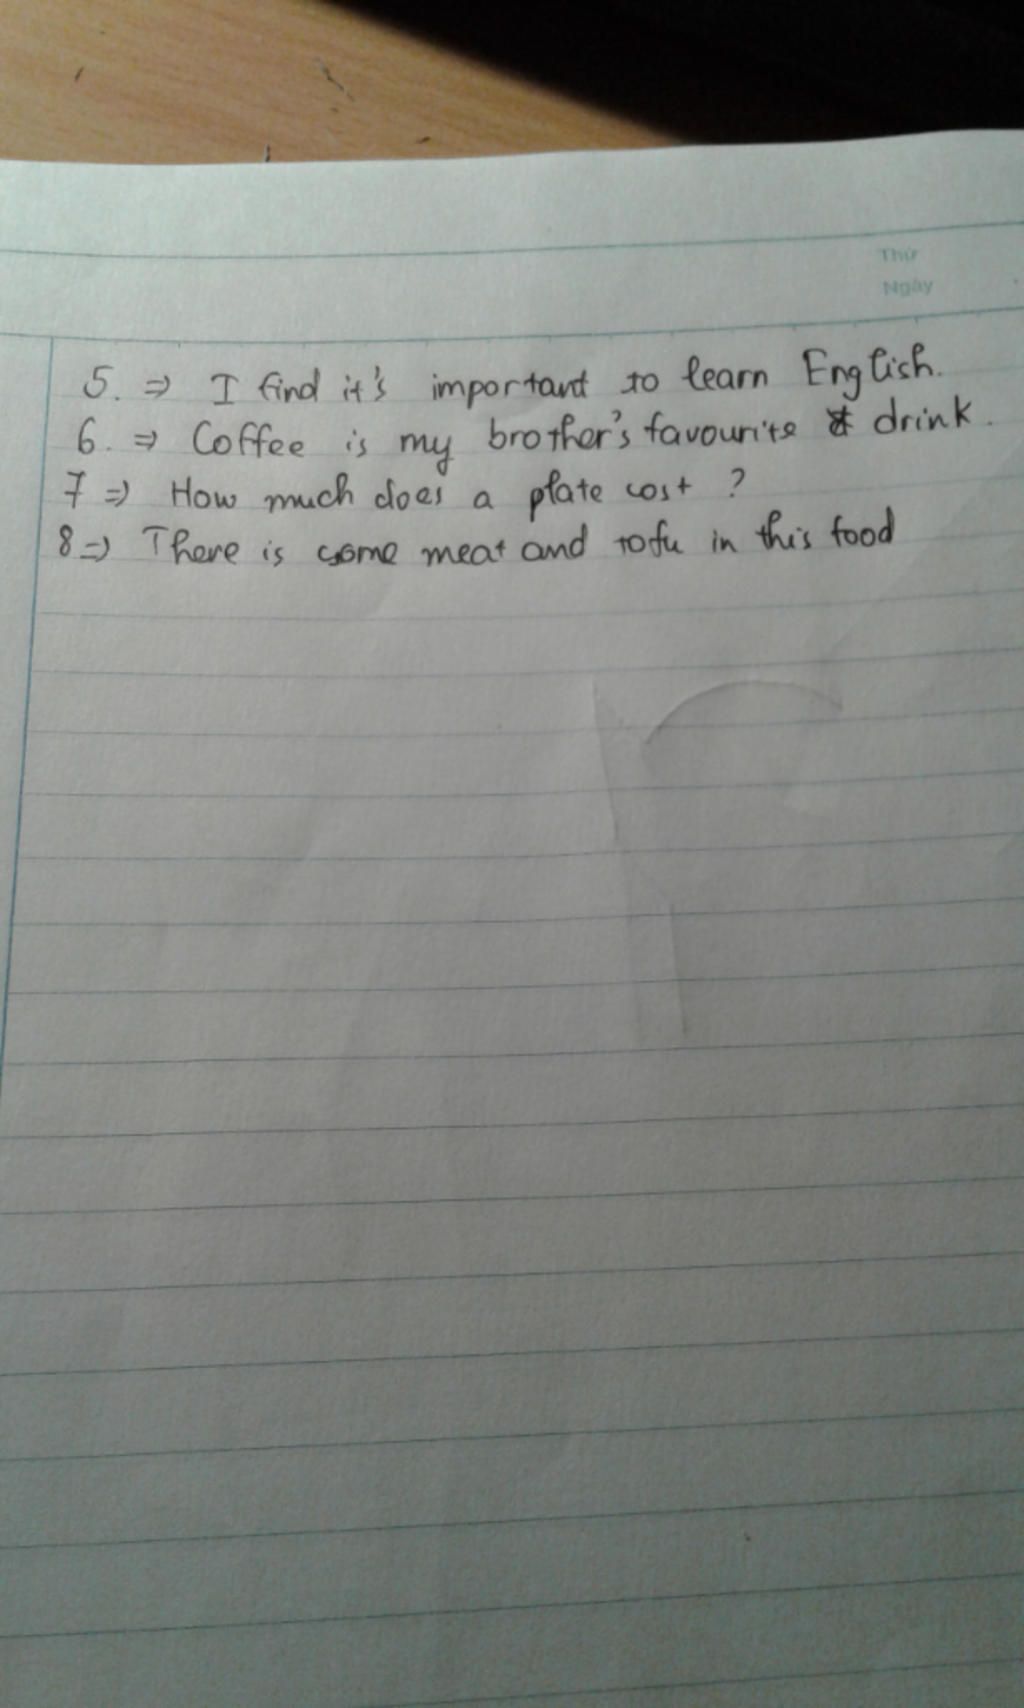 Thứ
Ngày
5. => I find it's important to learn English.
6. => Coffee is my brother's favourite drink.
7 => How much does a plate cost ?
8 => There is some meat and tofu in this food